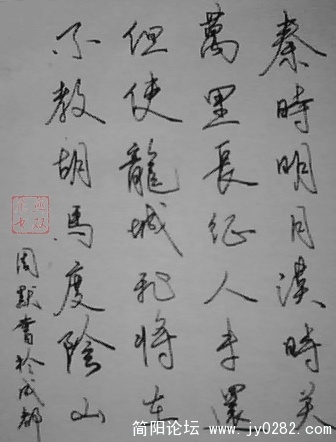 秦時明月漢時关
萬里長征人未還
但使龍城飛将在
不教胡馬度陰山
周默書於成都
简阳论坛 www.jy0282.com